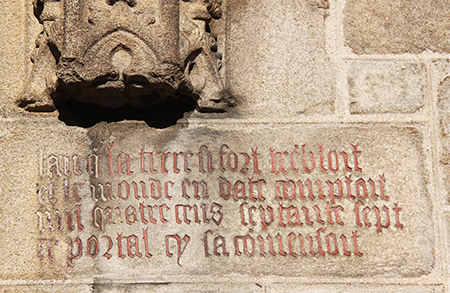 lanq la terre si fort trēbloit
et le monde en date comptoit
mil quatre cens septante sept
ce portal cy sa cōmensoit